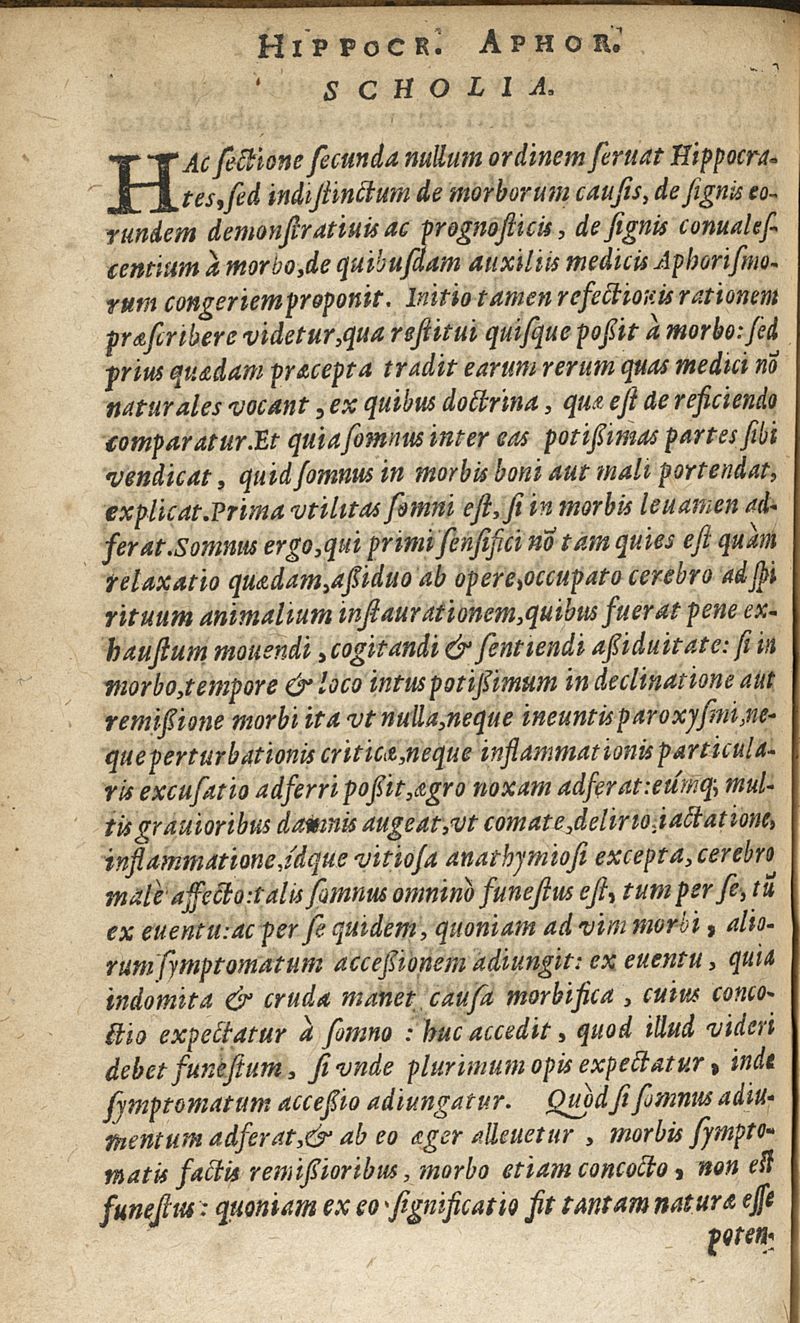 HIPPOCR. APHOR.
SCHOLIA.
HAc ſectione ſecunda nullum ordinem ſeruat Hippocra-
tes, ſed indiſtinctum de morborum cauſis, de ſignis eo-
rundem demonſtratiuis ac prognoſticis, de ſignis conualeſ-
centium à morbo, de quibuſdam auxiliis medicis Aphoriſmo-
rum congeriem proponit. Initio tamen refectionis rationem
præſcribere videtur, qua reſtitui quiſque poßit à morbo: ſed
prius quædam præcepta tradit earum rerum quas medici nō
naturales vocant, ex quibus doctrina, quæ eſt de reficiendo
comparatur. Et quia ſomnus inter eas potißimas partes ſibi
vendicat, quid ſomnus in morbis boni aut mali portendat,
explicat. Prima vtilitas ſomni eſt, ſi in morbis leuamen ad-
ferat. Somnus ergo, qui primi ſenſifici nō tam quies eſt quàm
relaxatio quædam, aßiduo ab opere, occupato cerebro ad ſpi
rituum animalium inſtaurationem, quibus fuerat pene ex-
hauſtum mouendi, cogitandi & ſentiendi aßiduitate: ſi in
morbo, tempore & loco intus potißimum in declinatione aut
remißione morbi ita vt nulla, neque ineuntis paroxyſmi, ne-
que perturbationis criticæ, neque inflammationis particula-
ris excuſatio adferri poßit, ægro noxam adferat: eúmq; mul-
tis grauioribus damnis augeat, vt comate, delirio, iactatione,
inflammatione, ídque vitioſa anathymioſi excepta, cerebro
malè affecto: talis ſomnus omninò funeſtus eſt, tum per ſe, tū
ex euentu: ac per ſe quidem, quoniam ad vim morbi, alio-
rum ſymptomatum acceßionem adiungit: ex euentu, quia
indomita & cruda manet cauſa morbifica, cuius conco-
ctio expectatur à ſomno: huc accedit, quod illud videri
debet funeſtum, ſi vnde plurimum opis expectatur, inde
ſymptomatum acceßio adiungatur. Quòd ſi ſomnus adiu-
mentum adferat, & ab eo æger alleuetur, morbis ſympto-
matis factis remißioribus, morbo etiam concocto, non eſt
funeſtus: quoniam ex eo ſignificatio fit tantam naturæ eſſe
poten-